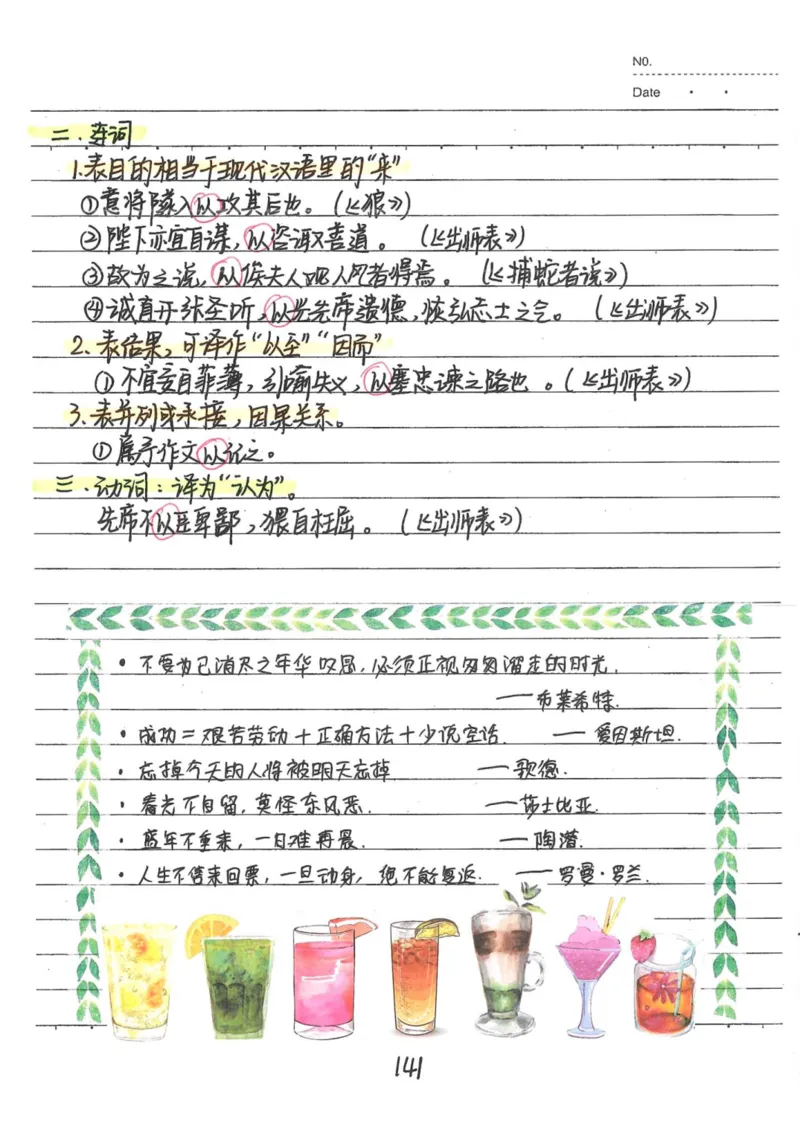 NO.
Date
二.连词
1.表目的相当于现代汉语里的“来”
①意将隧入以攻其后也。(《狼》)
②陛下亦宜自谋,以咨诹善道。 (《出师表》)
③故为之说,以俟夫人观人风者得焉。 (《捕蛇者说》)
④诚宜开张圣听,以光先帝遗德,恢弘志士之气。 (《出师表》)
2.表结果,可译作“以至”“因而”
①不宜妄自菲薄,引喻失义,以塞忠谏之路也 。(《出师表》)
3.表并列或承接,因果关系。
①属予作文以记之。
三.动词:译为“认为”。
先帝不以臣卑鄙,猥自枉屈。 (《出师表》)
• 不要为已消尽之年华叹息,必须正视匆匆溜走的时光.
——布莱希特.
• 成功=艰苦劳动+正确方法+少说空话. ——爱因斯坦.
• 忘掉今天的人将被明天忘掉 ——歌德.
• 春光不自留,莫怪东风恶. ——莎士比亚.
• 盛年不重来,一日难再晨. ——陶潜.
• 人生不售来回票,一旦动身,绝不能复返. ——罗曼·罗兰.
141